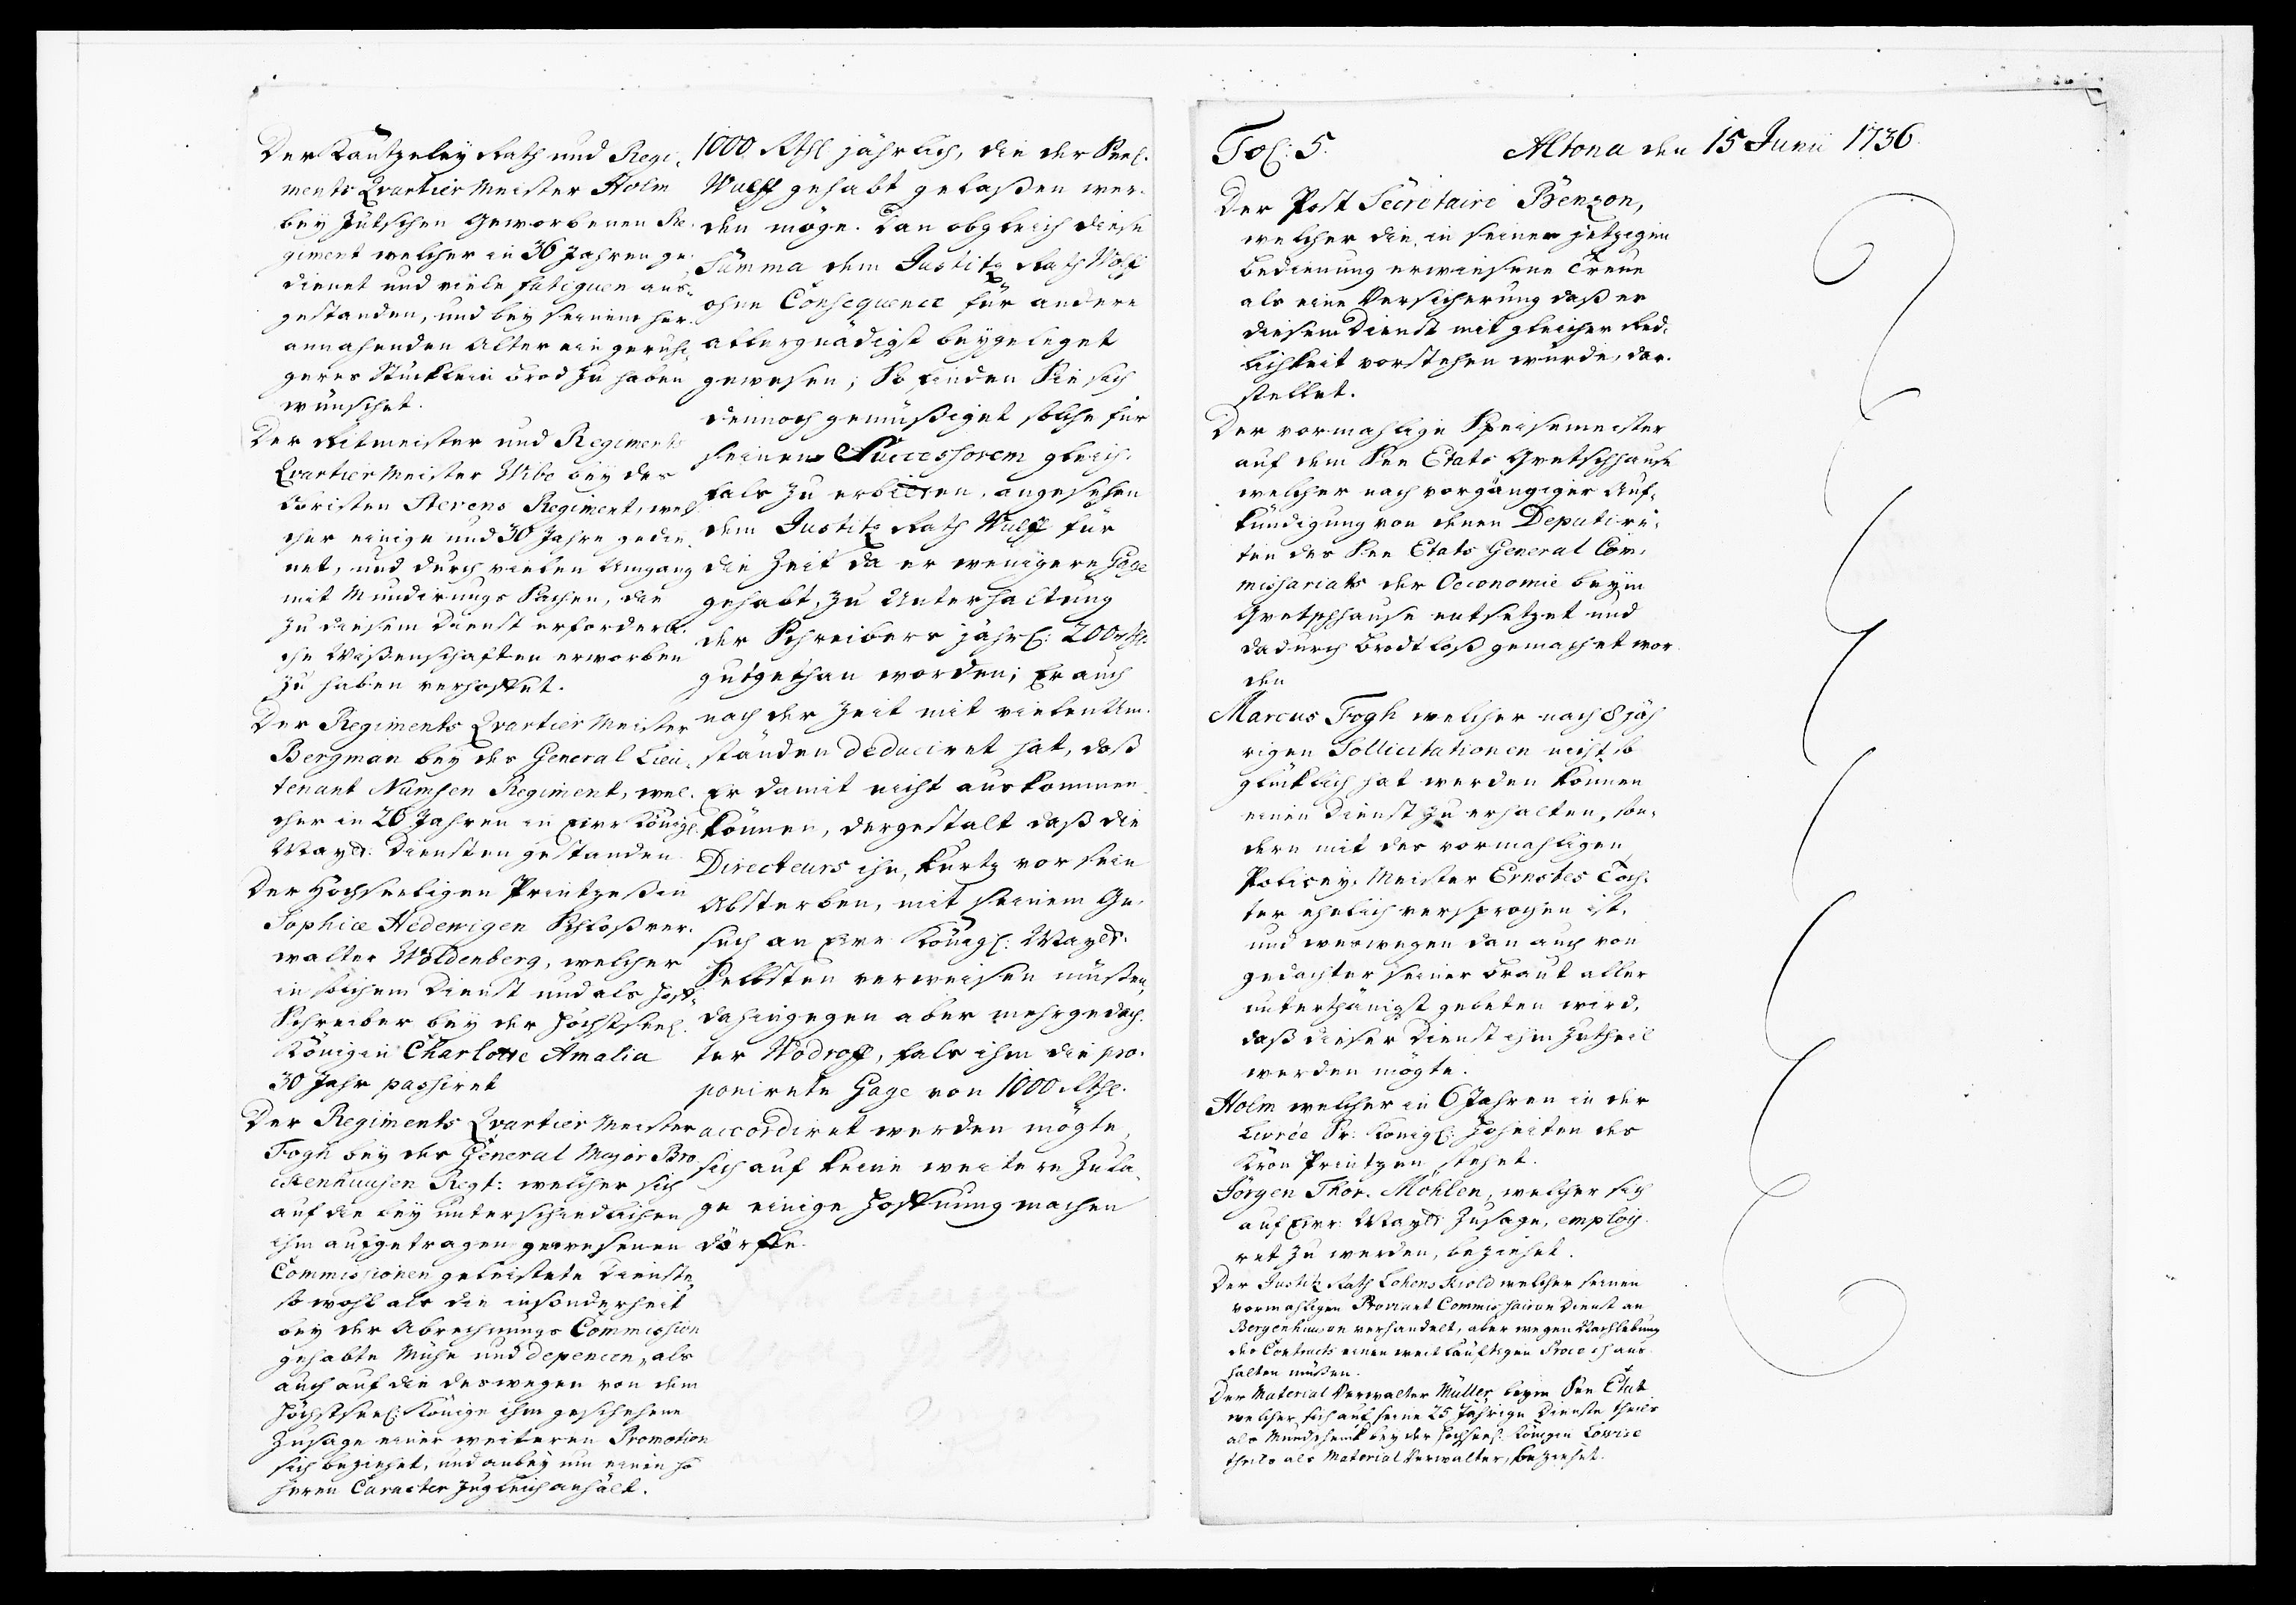 Der Cantzeley Rath und Regi-
ments Qvartier Meister Holm
bey Jütschen Geworbenen Re-
giment welcher in 36 Jahren ge-
dienet und viele fatiguen aus-
gestanden, und bey seinem her-
annahenden Alter ein geruhi-
geres Stücklein Brod zu haben
wünschet.
Der Ritmeister und Regiments
Qvartier Meister Wibe bey des
Obristen Stevens Regiment, wel-
cher einige und 30 Jahre gedie-
net, und durch vielen Umgang
mit Mundirungs Sachen, die
zu diesem Dienst erforderli-
che Wißenschaften erworben
zu haben verhoffet.
Der Regiments Qvartier Meister
Bergman bey des General Lieu-
tenant Numsen Regiment, wel-
cher in 26 Jahren in Eure Königl.
Mayst: Diensten gestanden
Der Höchseeligen Printzeßin
Sophiæ Hedewigen Schloßver-
walter Woldenberg, welcher
in solchem Dienst und als Hoff-
Schreiber bey der Höchstseel.
Königin Charlotte Amalia
30 Jahr passiret
Der Regiments Qvartier Meister
Fogh bey des General Major Bro-
ckenhuusen Regt: welcher sich
auf die bey unterschiedlichen
ihm aufgetragen gewesenen
Commissionen geleistete Dienste,
so wohl als die insonderheit
bey der Abrechnungs Commission
gehabte Mühe und depencen, als
auch auf die deswegen von dem
Höchstseel: Könige ihm geschehene
Zusage einer weiteren Promotion
sich beziehet, und anbey um einen hö-
heren Caracter zugleich anhält.
1000 Rthl jährlich, die der Seel.
Wulff gehabt gelaßen wer-
den möge. Dan obgleich diese
Summa dem Justitz Rath Wolff
ohne Consequence für andere
allergnädigst beygeleget
gewesen; So finden Sie sich
dennoch gemüßiget solche für
seinen Successorem gleich-
fals zu erbitten, angesehen
dem Justitz Rath Wulff für
die Zeit da er wenigere Gage
gehabt, zu Unterhaltung
der Schreibers jährl: 200 rthl.
gutgethan worden; Er auch
nach der Zeit mit vielen Um-
ständen deduciret hat, daß
Er damit nicht auskommen
können, dergestalt daß die
Directeurs ihn, kurtz vor sein
Absterben, mit seinem Ge-
such an Eure Königl: Mayst.
Selbsten verweisen müßen,
dahingegen aber mehrgedach-
ter Wodroff, fals ihm die pro-
ponirete Gage von 1000 Rthl.
accordiret werden mögte,
sich auf keine weitere Zula-
ge einige Hoffnung machen
dörffte.
Fol: 5. Altona den 15 Junii 1736.
Der Post Secretaire Benzon,
welcher die in seiner jetzigen
Bedienung erwiesene Treue
als eine Versicherung daß er
diesem Dienst mit gleicher Red-
lichkeit vorstehen würde, dar-
stellet.
Der vormahlige Speisemeister
auf dem See Etats Qvetschhause
welcher nach vorgängiger Auf-
kündigung von denen Deputire-
ten des See Etats General Com-
missariats der Oeconomie beym
Qvetschhause entsetzet und
dadurch Brodtloß gemachet wor-
den
Marcus Fogh welcher nach 8 jäh-
rigen Sollicitationen nicht so
glücklich hat werden können
einen Dienst zu erhalten, son-
dern mit des vormahligen
Policey-Meister Ernstes Toch-
ter ehelich versprochen ist,
und weswegen dan auch von
gedachter seiner Braut aller
unterthänigst gebeten wird,
daß dieser Dienst ihm zutheil
werden mögte.
Holm welcher in 6 Jahren in der
Livrée Sr: Königl: Hoheiten des
Kron Printzen stehet.
Jörgen Thor. Mohlen, welcher sich
auf Eure Mayst: Zusage, employi-
ret zu werden, beziehet.
Der Justitz Rath Lohenskiold welcher seinen
vormahligen Proviant Commissairen Dienst an
Bergenhuusen verhandelt, aber wegen Nachlebung
des Contracts einen weitläuftigen Process aus-
halten müßen.
Der Material Verwalter Müller beym See Etat
welcher sich auf seine 25 Jährige Dienste theils
als Mundschenk bey der Hochseel: Königin Lovise
theils als Material Verwalter, beziehet.